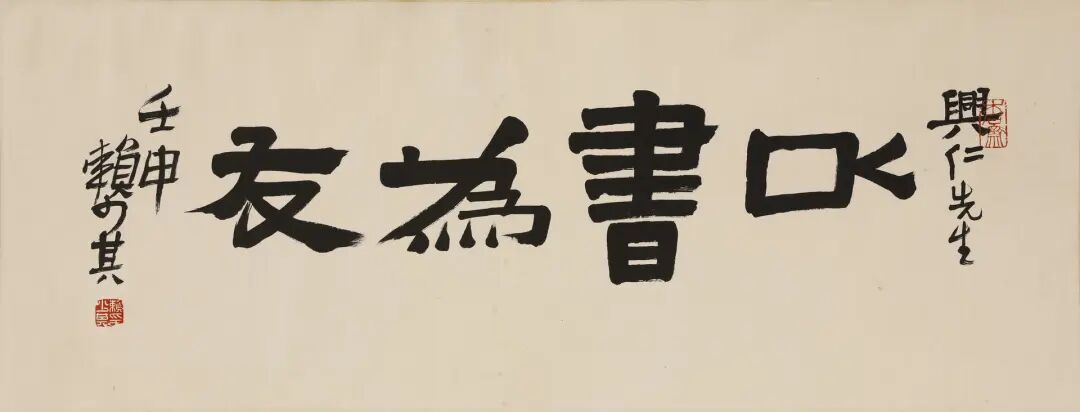 興仁先生
以書為友
壬申
賴少其